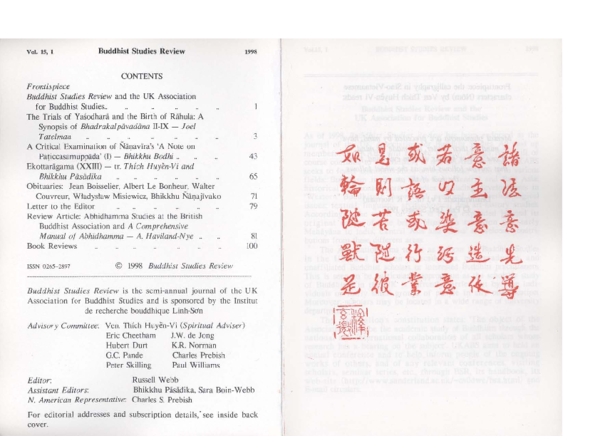 Vol. 15, 1 Buddhist Studies Review 1998
CONTENTS
Frontispiece
Buddhist Studies Review and the UK Association
for Buddhist Studies 1
The Trials of Yaśodharā and the Birth of Rāhula: A
Synopsis of Bhadrakalpāvadāna II-IX — Joel
Tatelman 3
A Critical Examination of Ñāṇavīra's 'A Note on
Paṭiccasamuppāda' (I) — Bhikkhu Bodhi 43
Ekottarāgama (XXIII) — tr. Thích Huyên-Vi and
Bhikkhu Pāsādika 65
Obituaries: Jean Boisselier, Albert Le Bonheur, Walter
Couvreur, Władysław Misiewicz, Bhikkhu Ñāṇajīvako 71
Letter to the Editor 79
Review Article: Abhidhamma Studies at the British
Buddhist Association and A Comprehensive
Manual of Abhidhamma — A. Haviland-Nye 81
Book Reviews 100
ISSN 0265-2897 © 1998 Buddhist Studies Review
Buddhist Studies Review is the semi-annual journal of the UK
Association for Buddhist Studies and is sponsored by the Institut
de recherche bouddhique Linh-Sơn
Advisory Committee: Ven. Thích Huyên-Vi (Spiritual Adviser)
Eric Cheetham J.W. de Jong
Hubert Durt K.R. Norman
G.C. Pande Charles Prebish
Peter Skilling Paul Williams
Editor: Russell Webb
Assistant Editors: Bhikkhu Pāsādika, Sara Boin-Webb
N. American Representative: Charles S. Prebish
For editorial addresses and subscription details, see inside back
cover.
諸法意先導
意主意造作
若以染污意
或語或行業
是則苦隨彼
如輪隨獸足